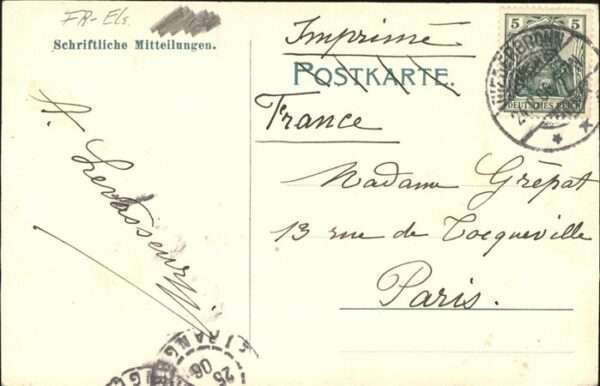 FR-Els.
Schriftliche Mitteilungen.
A. Levasseur
Imprimé
POSTKARTE.
France
Madame Grépat
13 rue de Tocqueville
Paris.
5 5
DEUTSCHES REICH
NIEDERBRONN
ETRANGER
25
06